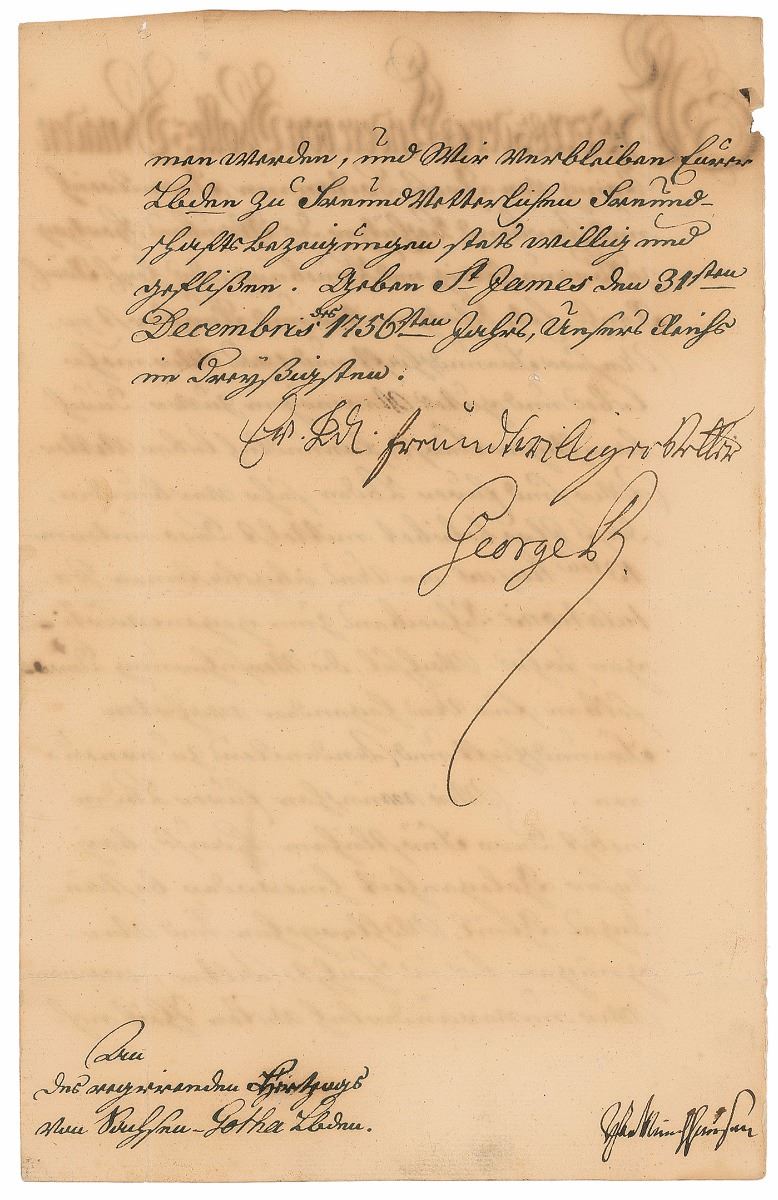 men werden, und Wir verbleiben Eurer
Lbden zu FreundVetterlichen Freund-
schaftsbezeigungen stets willig und
geflißen. Geben St James den 31sten
Decembris des 1756sten Jahrs, Unsers Reichs
im Dreyßigsten.
Ew. Ld. freundtwilliger Vetter
George R.
An
des regierenden Hertzogs
von Sachsen-Gotha Lbden.
Münchhausen